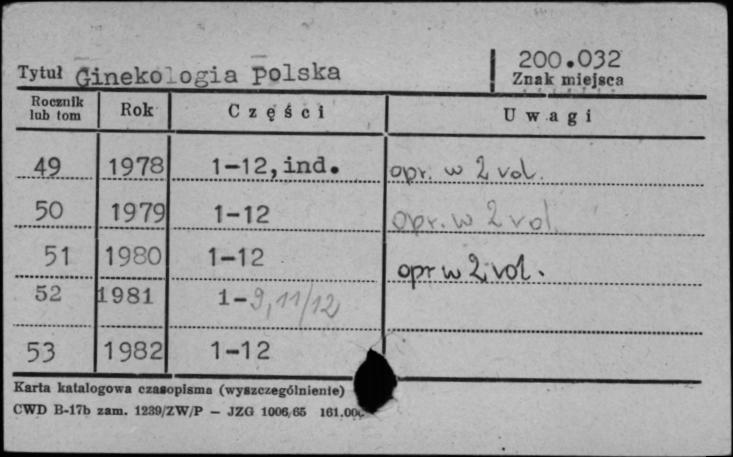 200.032
Tytuł Ginekologia Polska Znak miejsca
Rocznik lub tom Rok Części Uwagi
49 1978 1-12, ind. opr. w 2 vol.
50 1979 1-12 opr. w 2 vol.
51 1980 1-12 opr w 2 vol.
52 1981 1-9, 11/12
53 1982 1-12
Karta katalogowa czasopisma (wyszczególnienie)
CWD B-17b zam. 1239/ZW/P — JZG 1006/65 161.000